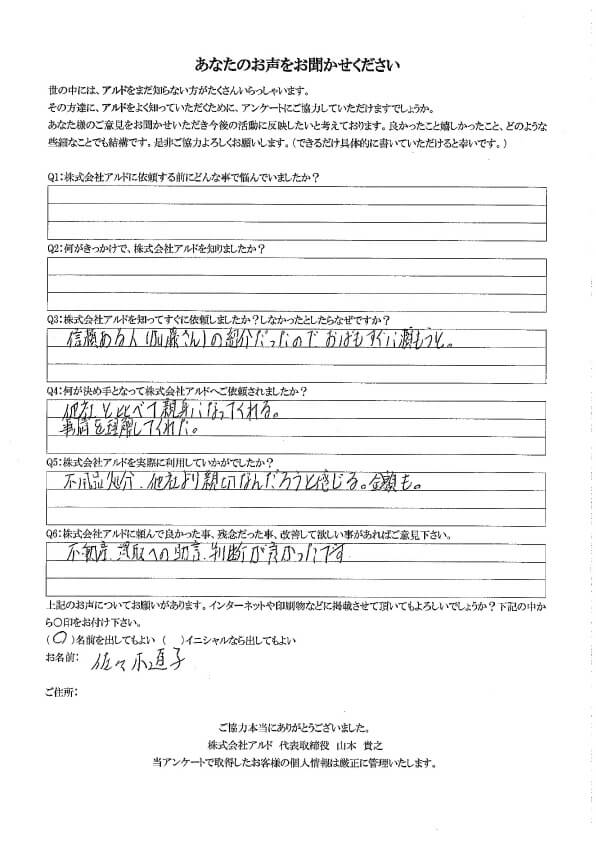 あなたのお声をお聞かせください
世の中には、アルドをまだ知らない方がたくさんいらっしゃいます。
その方達に、アルドをよく知っていただくために、アンケートにご協力していただけますでしょうか。
あなた様のご意見をお聞かせいただき今後の活動に反映したいと考えております。良かったこと嬉しかったこと、どのような
些細なことでも結構です。是非ご協力よろしくお願いします。（できるだけ具体的に書いていただけると幸いです。）
Q1：株式会社アルドに依頼する前にどんな事で悩んでいましたか？
Q2：何がきっかけで、株式会社アルドを知りましたか？
Q3：株式会社アルドを知ってすぐに依頼しましたか？しなかったとしたらなぜですか？
信頼ある人(加藤さん)の紹介だったので おばもすぐに頼もうと。
Q4：何が決め手となって株式会社アルドへご依頼されましたか？
他社と比べて親身になってくれる。
事情を理解してくれた。
Q5：株式会社アルドを実際に利用していかがでしたか？
不用品処分、他社より親切なんだろうと感じる。金額も。
Q6：株式会社アルドに頼んで良かった事、残念だった事、改善して欲しい事があればご意見下さい。
不動産 買取への助言、判断が良かったです
上記のお声についてお願いがあります。インターネットや印刷物などに掲載させて頂いてもよろしいでしょうか？下記の中か
ら〇印をお付け下さい。
（〇）名前を出してもよい （ ）イニシャルなら出してもよい
お名前： 佐々木直子
ご住所：
ご協力本当にありがとうございました。
株式会社アルド 代表取締役 山本 貴之
当アンケートで取得したお客様の個人情報は厳正に管理いたします。